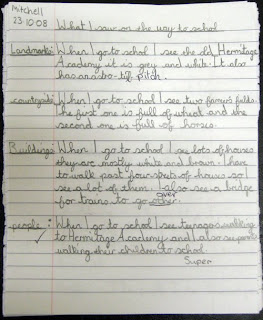 Mitchell
23.10.08
What I saw on the way to school
Landmarks: When I go to school I see the old Hermitage
Academy it is grey and white. It also
has an
pitch.
countryside: When I go to school I see two farmers fields
The first one is full of wheat and the
second one is full of horses.
Buildings: When I go to school I see lots of houses
they are mostly white and brown. I have
to walk past four streets of houses so I
see a lot of them. I also see a bridge
over
for trains to go other.
people: When I go to school I see walking
to Hermitage Academy and I also see parents
walking their children to school.
Super